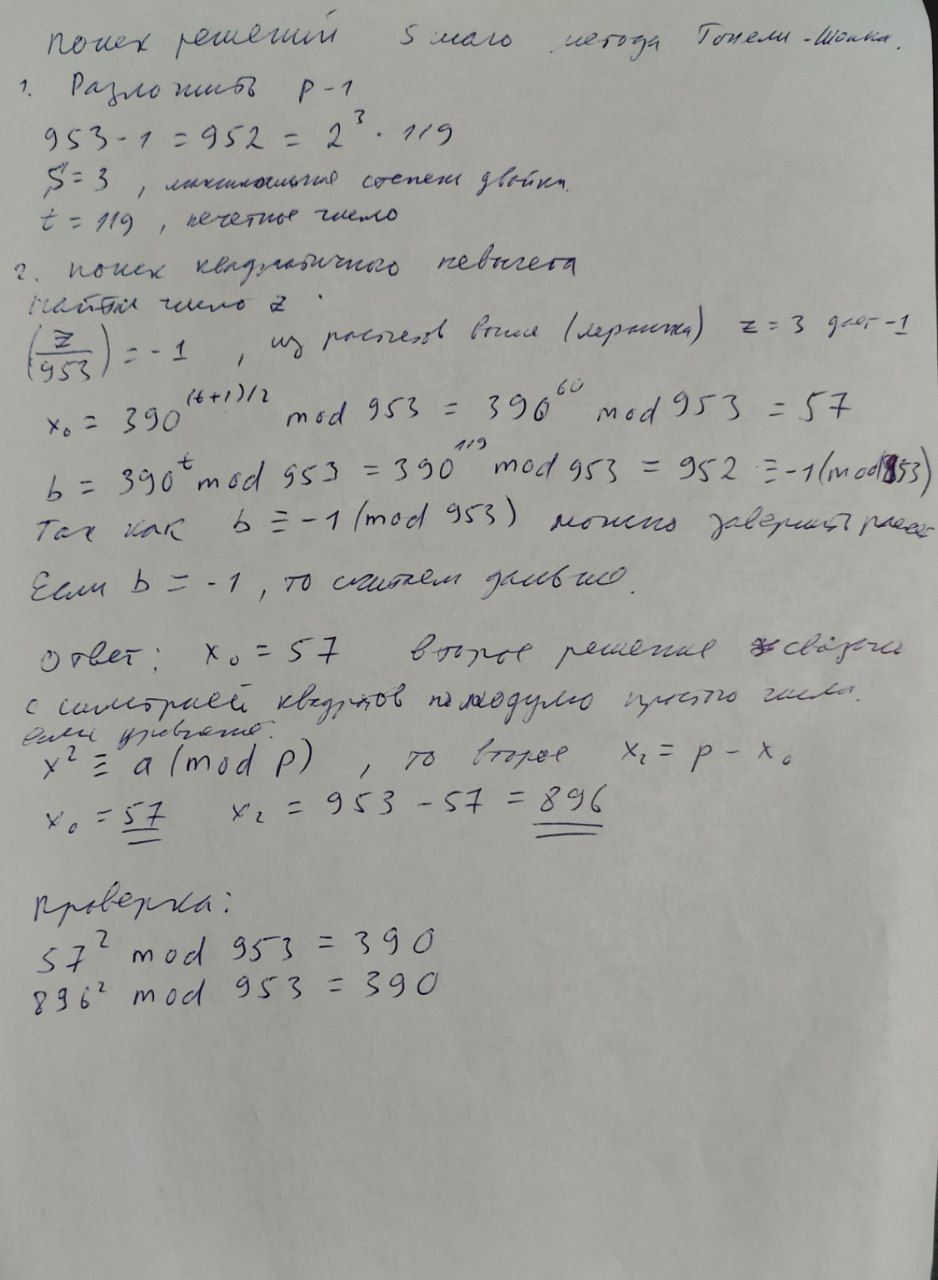 поиск решений 5 шаго метода Тонели-Шенкса.
1. Разложить p-1
953-1 = 952 = 2³ · 119
S = 3, максимальная степень двойки.
t = 119, нечетное число
2. поиск квадратичного невычета
найти число z.
(z/953) = -1, из расчетов выше (лежандра) z = 3 дает -1
x₀ = 390^((t+1)/2) mod 953 = 390^60 mod 953 = 57
b = 390^t mod 953 = 390^119 mod 953 = 952 ≡ -1 (mod 953)
Так как b ≡ -1 (mod 953) можно завершить
Если b = -1, то считаем дальше.
Ответ: x₀ = 57 второе решение связано
с симметрией квадратов по модулю простого числа.
если уравнение.
x² ≡ a (mod p), то второе x₂ = p - x₀
x₀ = 57 x₂ = 953 - 57 = 896
Проверка:
57² mod 953 = 390
896² mod 953 = 390